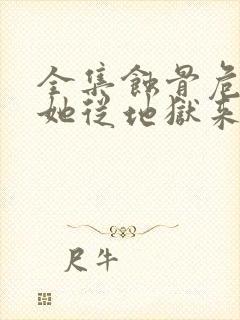 全集蝕骨危
她從地獄來
尺牛